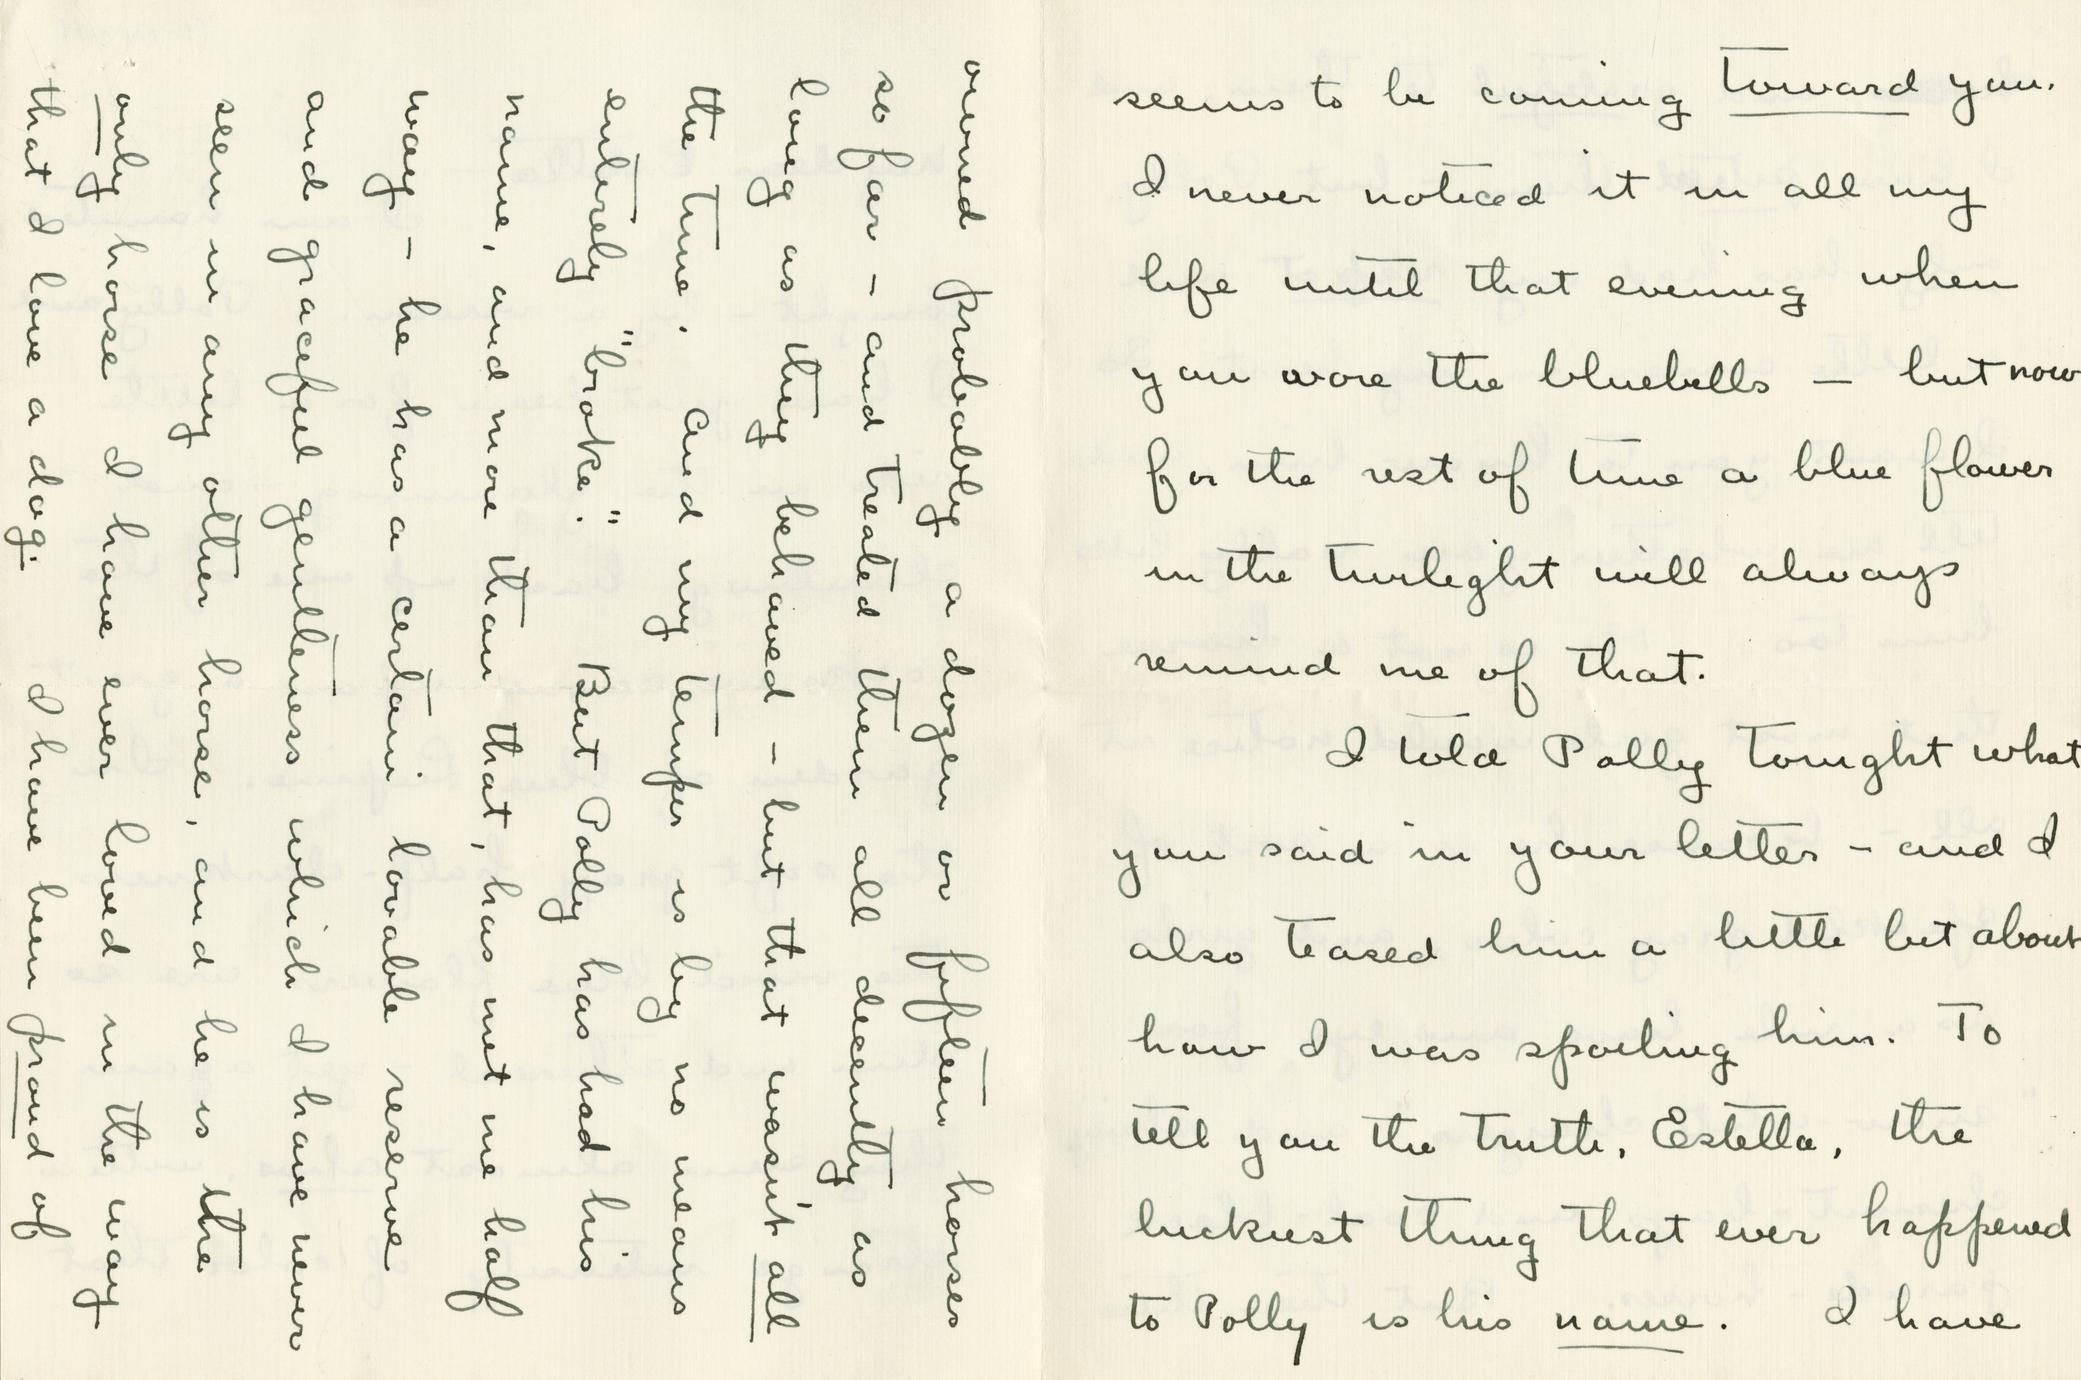 seems to be coming toward you.
I never noticed it in all my
life until that evening when
you wore the bluebells – but now
for the rest of time a blue flower
in the twilight will always
remind me of that.
I told Polly tonight what
you said in your letter – and I
also teased him a little bit about
how I was spoiling him. To
tell you the truth, Estella, the
luckiest thing that ever happened
to Polly is his name. I have
owned probably a dozen or fifteen horses
so far – and treated them all decently as
long as they behaved – but that wasn't all
the time. And my temper is by no means
entirely "broke." But Polly has had his
name, and more than that, has met me half
way – he has a certain lovable reserve
and graceful gentleness which I have never
seen in any other horse, and he is the
only horse I have ever loved in the way
that I love a dog. I have been proud of